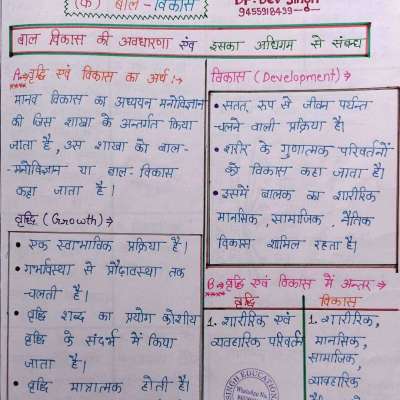 (क) बाल - विकास
Dr. Dev Singh
9455918439
बाल विकास की अवधारणा एंव इसका अधिगम से संबन्ध
A→ वृद्धि एवं विकास का अर्थ :→
मानव विकास का अध्ययन मनोविज्ञान
की जिस शाखा के अन्तर्गत किया
जाता है, उस शाखा को बाल-
-मनोविज्ञान या बाल- विकास
कहा जाता है।
वृद्धि (Growth) →
• एक स्वाभाविक प्रक्रिया है।
• गर्भावस्था से प्रौढ़ावस्था तक
-चलती है।
• वृद्धि शब्द का प्रयोग कोशीय
वृद्धि के संदर्भ में किया
जाता है।
• वृद्धि मात्रात्मक होती है।
विकास (Development) →
• सतत् रूप से जीवन पर्यन्त
-चलने वाली प्रक्रिया है।
• शरीर के गुणात्मक परिवर्तनों
को विकास कहा जाता है।
• इसमें बालक का शारीरिक
मानसिक, सामाजिक, नैतिक
विकास शामिल रहता है।
B→ वृद्धि एवं विकास में अन्तर →
वृद्धि
1. शारीरिक एवं
व्यवहारिक परिवर्तन
विकास
1. शारीरिक,
मानसिक,
सामाजिक,
व्यवहारिक
SINGH EDUCATION
WhatsApp No.